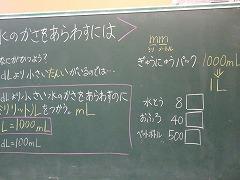 水のかさをあらわすには
なにがあつよう?
dLより小さいたんいがいるのでは…
dLより小さい水のかさをあらわすのに
ミリリットルをつかう。mL
L=1000mL
dL=100mL
mm
ミリメートル
ぎゅうにゅうパック 1000mL
1L
水とう 8
おふろ 40
ペットボトル 500